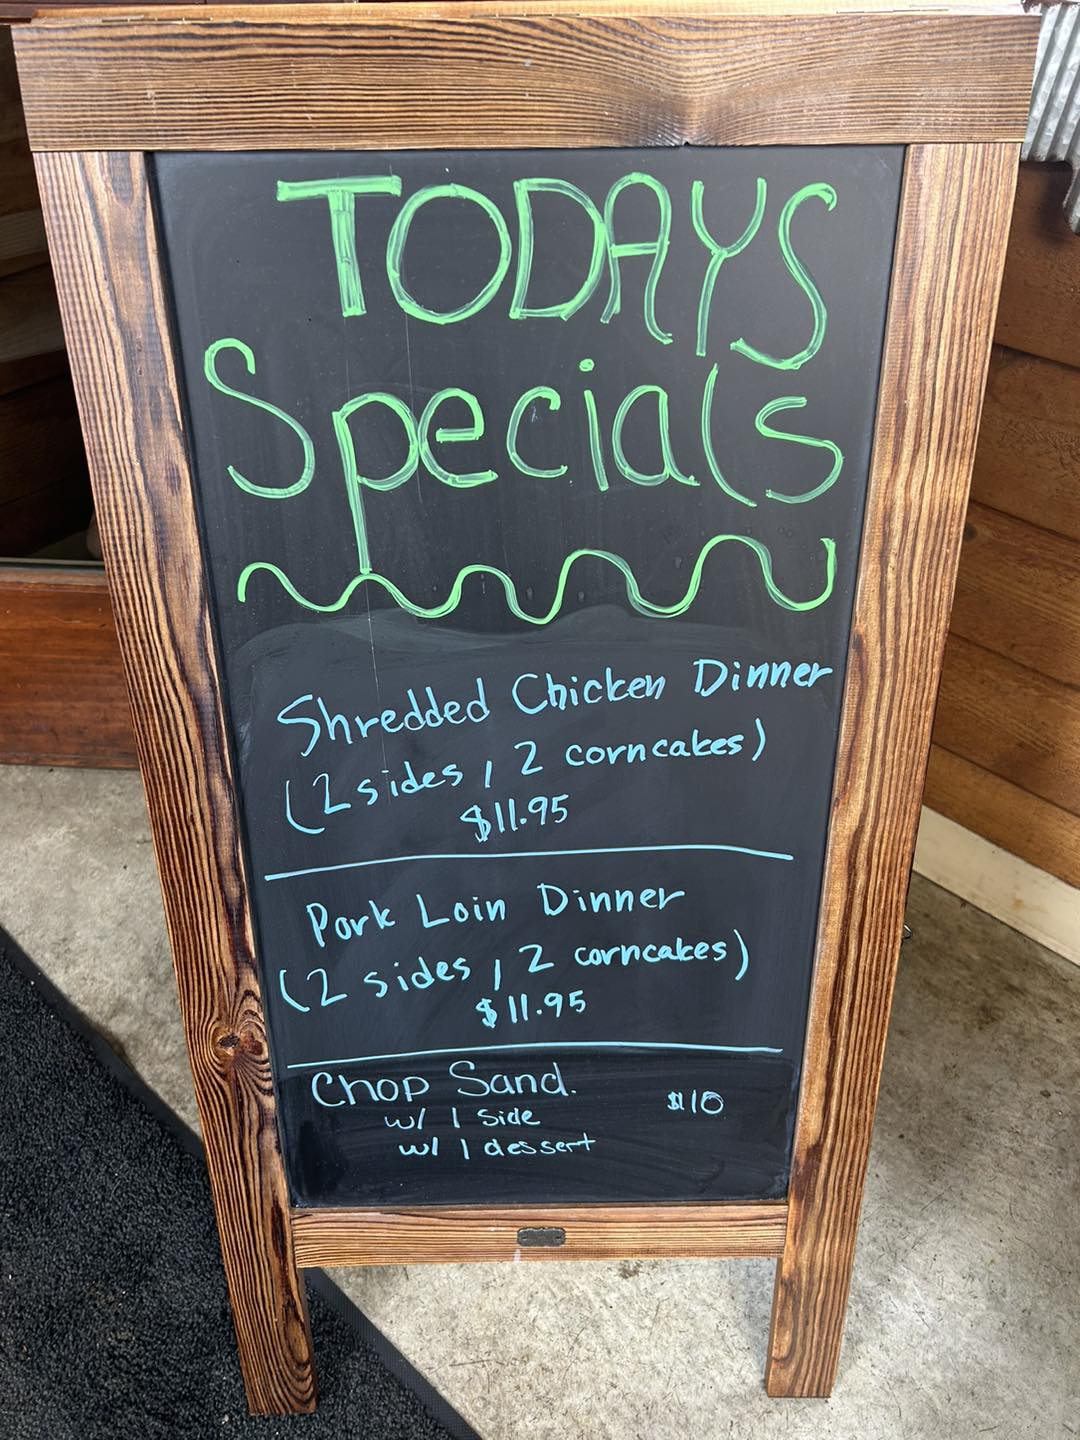 TODAYS
Specials
Shredded Chicken Dinner
(2 sides, 2 corncakes)
$11.95
Pork Loin Dinner
(2 sides, 2 corncakes)
$11.95
Chop Sand. $10
w/ 1 side
w/ 1 dessert